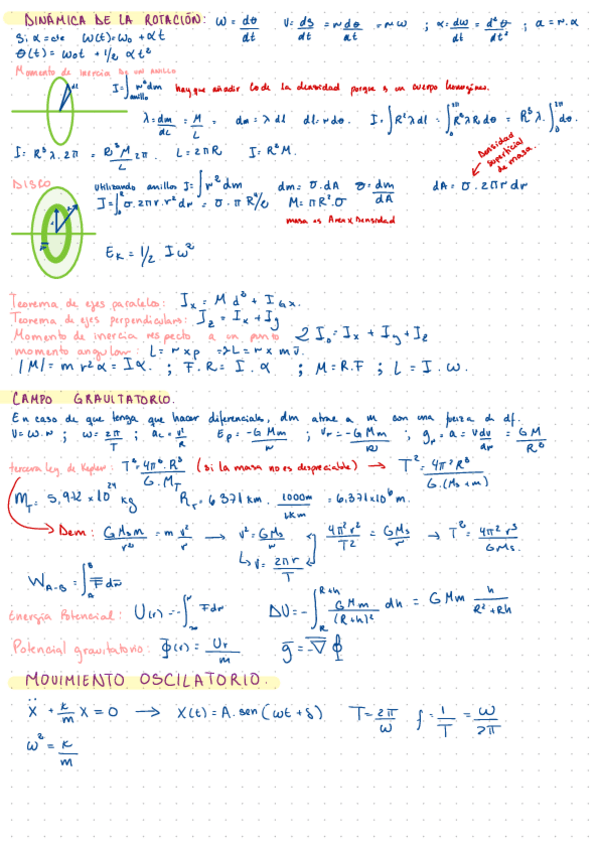 DINÁMICA DE LA ROTACIÓN: ω = dθ/dt   v = ds/dt = r dθ/dt = r ω ; α = dω/dt = d²θ/dt² ; a = r.α
Si α = cte   ω(t) = ω₀ + αt
θ(t) = ω₀t + 1/2 αt²
Momento de inercia de un anillo
I = ∫anillo r² dm   hay que añadir lo de la densidad porque es un cuerpo homogéneo.
λ = dm/dl = M/L   dm = λ dl   dl = r dθ.   I = ∫R² λ dl = ∫₀²π R² λ R dθ = R³ λ . ∫₀²π dθ.
I = R³ λ . 2π = R³ M/L 2π .   L = 2πR   I = R² M.
Densidad superficial de masa
DISCO   utilizando anillos I = ∫r² dm   dm = σ.dA   σ = dm/dA   dA = σ . 2πr dr
I = ∫₀ σ.2πr.r² dr = σ . π R⁴/2   M = πR².σ
masa es Area x Densidad
E_K = 1/2 I ω²
Teorema de ejes paralelos: Iₓ = M d² + I_Gx.
Teorema de ejes perpendiculares: I_z = Iₓ + I_y
Momento de inercia respecto a un punto 2 I₀ = Iₓ + I_y + I_z
momento angular: L = r x p => L = r x m v.
|M| = m r² α = Iα. ; F.R = I . α ; M = R.F ; L = I . ω.
CAMPO GRAVITATORIO.
En caso de que tenga que hacer diferenciales, dm atrae a m con una fuerza d df.
V = ω.r ; ω = 2π/T ; a_c = v²/R   E_p = -G Mm/r ; V_r = -G Mm/RJ ; g_r = a = v dv/dr = G M/R²
tercera ley de Kepler: T² = 4π² . R³/G . M_T (si la masa no es despreciable) → T² = 4π² R³/G.(Ms + m)
M_T = 5,972 x 10²⁴ kg   R_T = 6371 km . 1000m/1km = 6.371x10⁶ m.
Dem: G Ms m/r² = m v²/r → v² = G Ms/r   4π² r²/T² = G Ms/r → T² = 4π² r³/G Ms.
v = 2πr/T
W_A-B = ∫_A^B F dr
Energía Potencial: U(r) = -∫_∞^r F dr   ΔU = -∫_R^R+h G Mm/(R+h)² dh = G Mm h/R² + Rh
Potencial gravitatorio: Φ(r) = U_r/m   g = -∇ Φ
MOVIMIENTO OSCILATORIO.
ẍ + k/m x = 0 → x(t) = A . sen (ωt + δ)   T = 2π/ω   f = 1/T = ω/2π
ω² = k/m